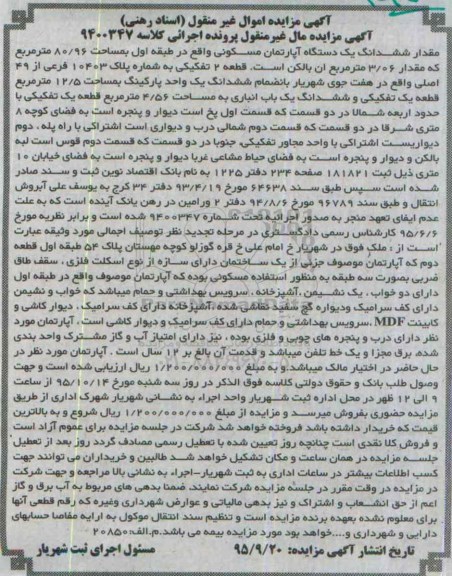 آگهی مزایده اموال غیر منقول (اسناد رهنی)
آگهی مزایده مال غیرمنقول پرونده اجرائی کلاسه ۹۴۰۰۳۴۷
مقدار ششدانگ یک دستگاه آپارتمان مسکونی واقع در طبقه اول بمساحت ۸۰/۹۶ مترمربع
که مقدار ۳/۰۶ مترمربع آن بالکن است. قطعه ۲ تفکیکی به شماره پلاک ۱۰۴۰۳ فرعی از ۴۹
اصلی واقع در هفت جوی شهریار بانضمام ششدانگ یک واحد پارکینگ بمساحت ۱۲/۵ مترمربع
قطعه یک تفکیکی و ششدانگ یک باب انباری به مساحت ۴/۵۶ مترمربع قطعه یک تفکیکی با
حدود اربعه شمالا در دو قسمت که قسمت اول پخ است دیوار و پنجره است به فضای کوچه ۸
متری شرقا در دو قسمت که قسمت دوم شمالی درب و دیواری است اشتراکی با راه پله ، دوم
دیواریست اشتراکی با واحد مجاور تفکیکی، جنوبا در دو قسمت که قسمت دوم قوس است لبه
بالکن و دیوار و پنجره است به فضای حیاط مشاعی غربا دیوار و پنجره است به فضای خیابان ۱۰
متری ذیل ثبت ۱۸۱۸۲۱ صفحه ۲۳۴ دفتر ۱۲۲۵ به نام بانک اقتصاد نوین ثبت و سند صادر
شده است سپس طبق سند ۶۴۶۳۸ مورخ ۹۳/۴/۱۹ دفتر ۳۴ کرج به یوسف علی آبروش
انتقال و طبق سند ۹۶۷۸۹ مورخ ۹۴/۸/۶ دفتر ۲ ورامین در رهن بانک آینده است که به علت
عدم ایفای تعهد منجر به صدور اجرائیه تحت شماره ۹۴۰۰۳۴۷ شده است و برابر نظریه مورخ
۹۵/۶/۶ کارشناس رسمی دادگستری در مرحله تجدید نظر توصیف اجمالی مورد وثیقه عبارت
است از : ملک فوق در شهریار خ امام علی خ قره گوزلو کوچه مهستان پلاک ۵۴ طبقه اول قطعه
دوم که آپارتمان موصوف جزئی از یک ساختمان دارای سازه از نوع اسکلت فلزی ، سقف طاق
ضربی بصورت سه طبقه به منظور استفاده مسکونی بوده که آپارتمان موصوف واقع در طبقه اول
دارای دو خواب ، یک نشیمن ، آشپزخانه ، سرویس بهداشتی و حمام میباشد که خواب و نشیمن
دارای کف سرامیک ودیواره گچ سفید نقاشی شده ، آشپزخانه دارای کف سرامیک ، دیوار کاشی و
کابینت MDF ، سرویس بهداشتی و حمام دارای کف سرامیک و دیوار کاشی است . آپارتمان مورد
نظر دارای درب و پنجره های چوبی و فلزی بوده ، نیز دارای امتیاز آب و گاز مشترک واحد بندی
شده، برق مجزا و یک خط تلفن میباشد و قدمت آن بالغ بر ۱۲ سال است . آپارتمان مورد نظر در
حال حاضر در اختیار مالک میباشد. و به مبلغ ۱/۲۰۰/۰۰۰/۰۰۰ ریال ارزیابی شده است و جهت
وصول طلب بانک و حقوق دولتی کلاسه فوق الذکر در روز سه شنبه مورخ ۹۵/۱۰/۱۴ از ساعت
۹ الی ۱۲ ظهر در محل اداره ثبت شهریار واحد اجراء به نشانی شهریار شهرک اداری از طریق
مزایده حضوری بفروش میرسد و مزایده از مبلغ ۱/۲۰۰/۰۰۰/۰۰۰ ریال شروع و به بالاترین
قیمت که خریدار داشته باشد فروخته خواهد شد شرکت در جلسه مزایده برای عموم آزاد است
و فروش کلا نقدی است چنانچه روز تعیین شده با تعطیل رسمی مصادف گردد روز بعد از تعطیل
جلسه مزایده در همان ساعت و مکان تشکیل خواهد شد طالبین و خریداران می توانند جهت
کسب اطلاعات بیشتر در ساعات اداری به ثبت شهریار-اجراء به نشانی بالا مراجعه و جهت شرکت
در مزایده در وقت مقرر در جلسه مزایده شرکت نمایند. ضمنا بدهی های مربوط به آب برق و گاز
اعم از حق انشعاب و اشتراک و نیز بدهی مالیاتی و عوارض شهرداری وغیره که رقم قطعی آنها
برای معلوم نشده بعهده برنده مزایده است و تنظیم سند انتقال موکول به ارایه مفاصا حسابهای
دارایی و شهرداری و....خواهد بود مورد مزایده بیمه می باشد.م.الف:۲۰۸۵۰
تاریخ انتشار آگهی مزایده: ۹۵/۹/۲۰ مسئول اجرای ثبت شهریار